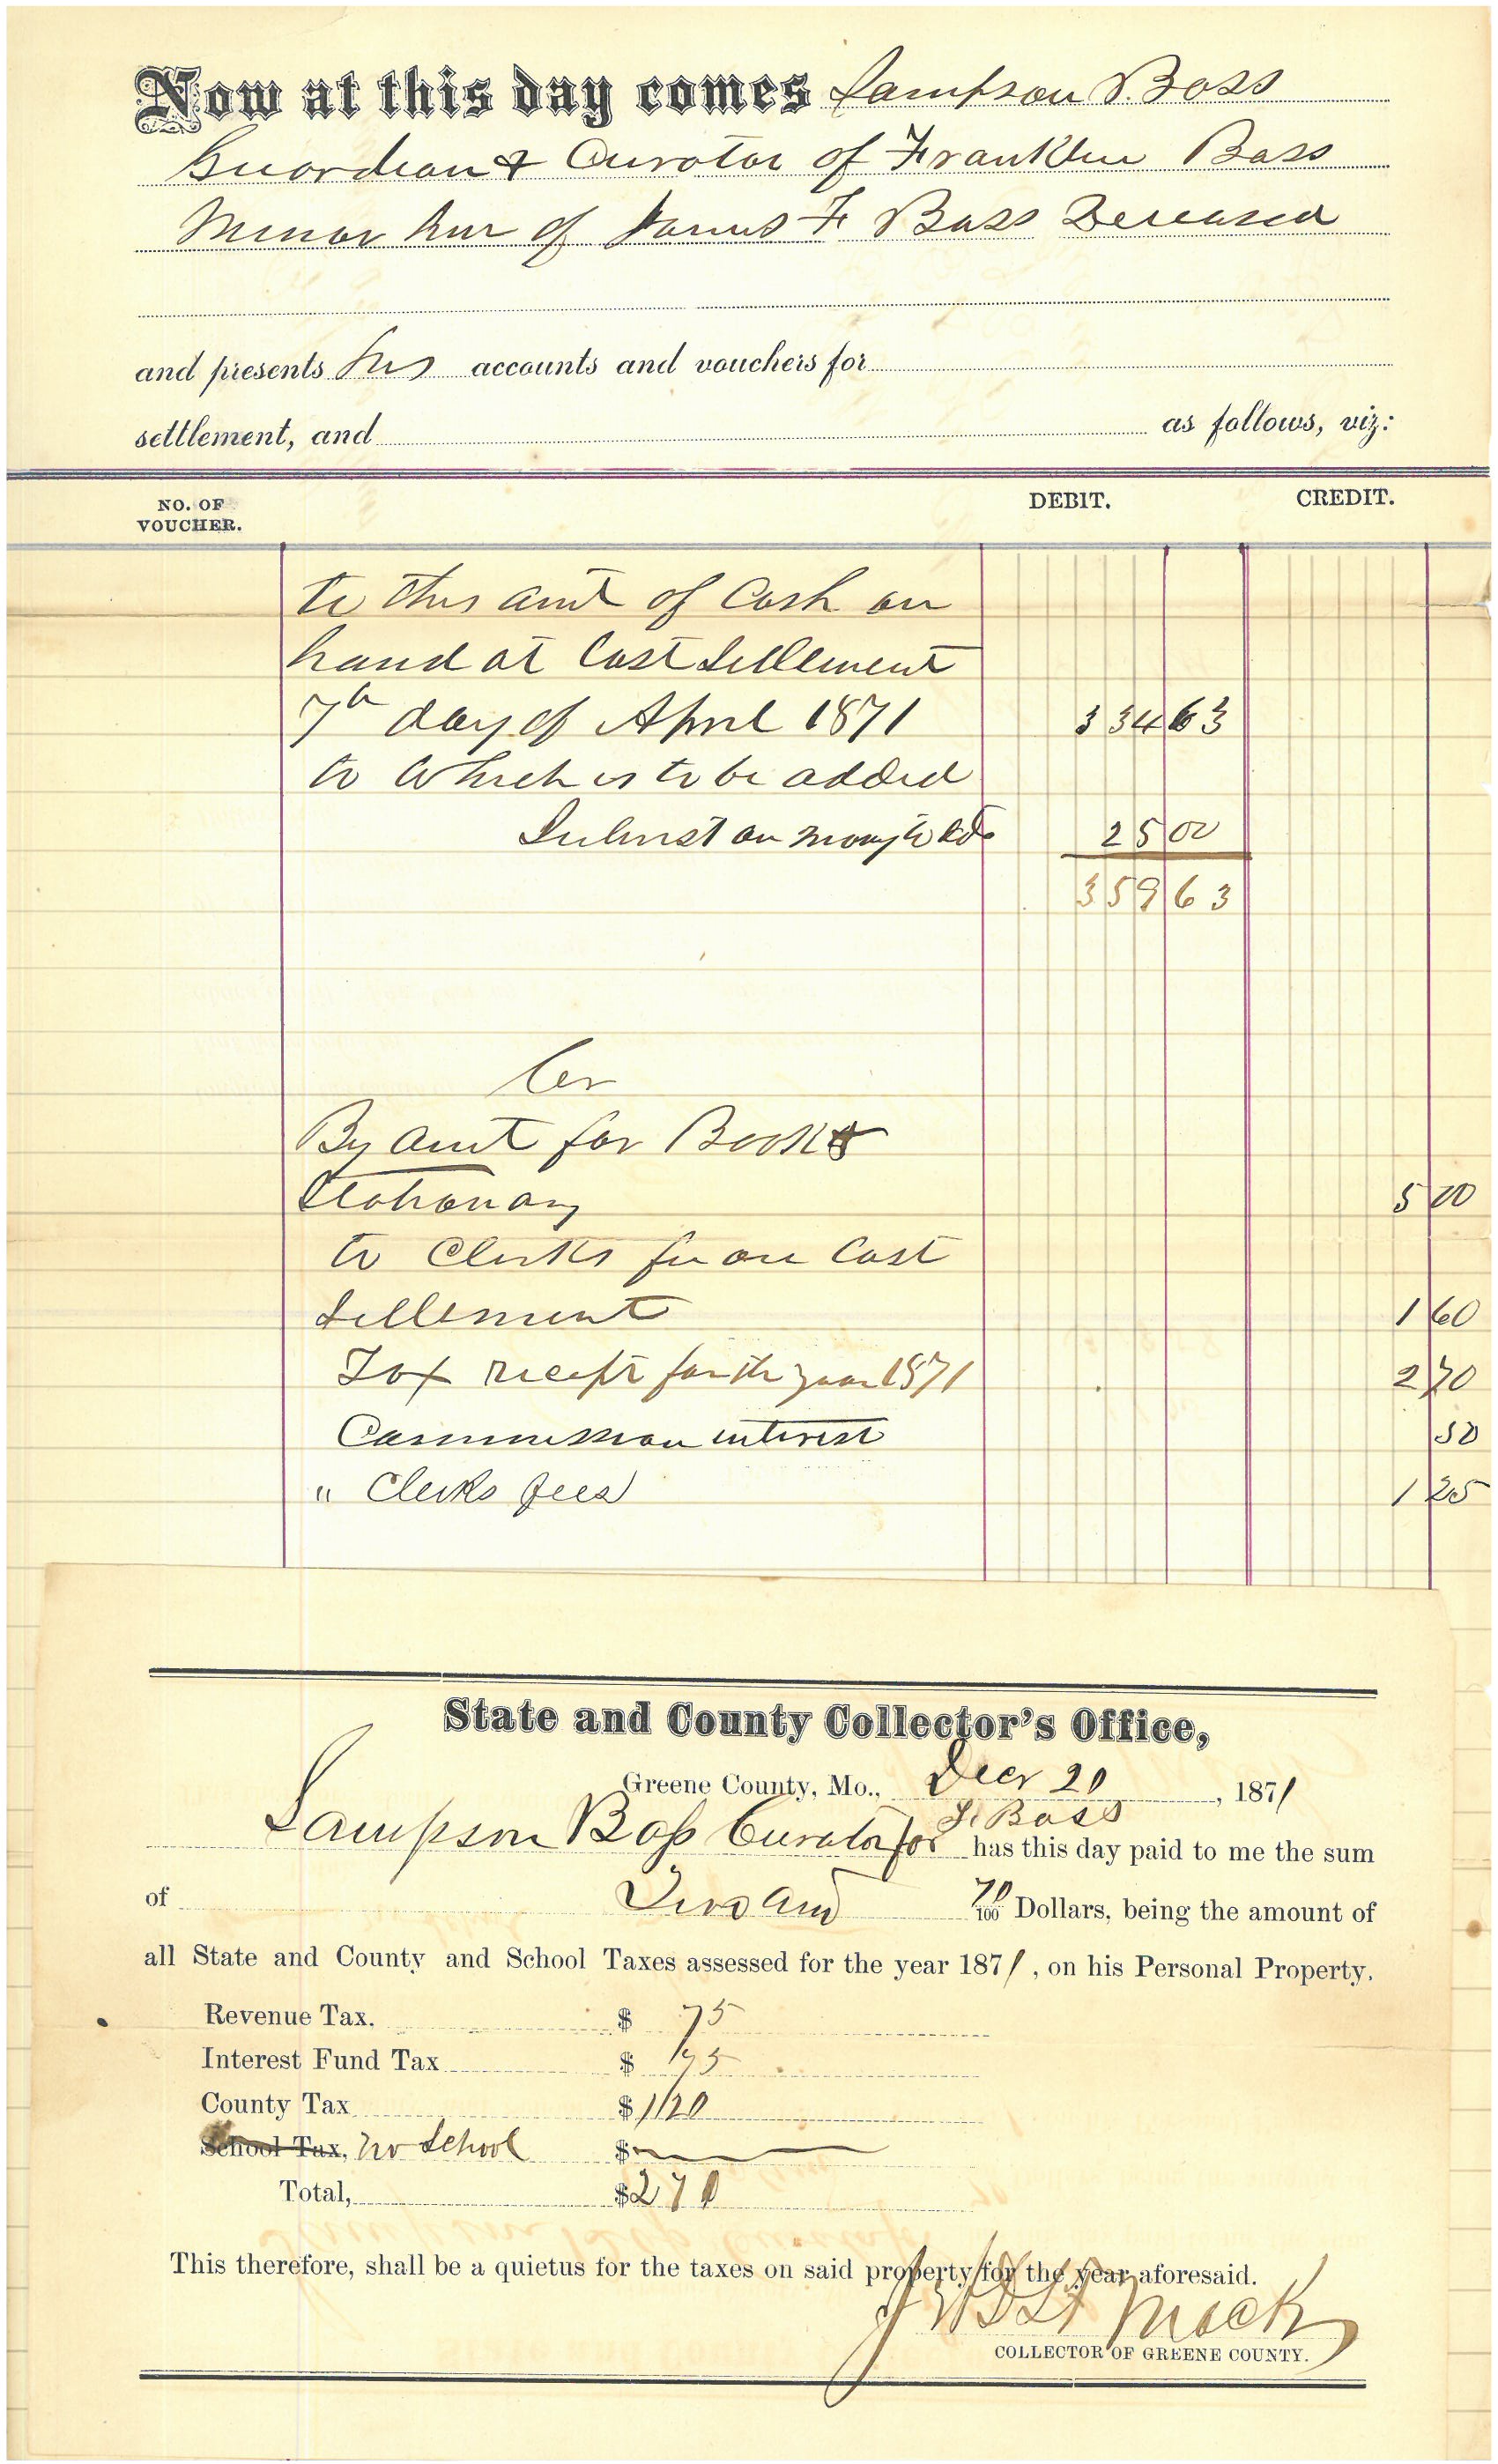 Now at this day comes Sampson Bass
Guardian & Curator of Franklin Bass
Minor heir of James F Bass Deceased
and presents his accounts and vouchers for
settlement, and as follows, viz:
NO. OF VOUCHER. DEBIT. CREDIT.
to this amt of Cash on
hand at last Settlement
7th day of April 1871 334 63
to which is to be added
Interest on mony 25 00
359 63
Cr
By amt for Books
Stationary 5 00
to Clerks fee on last
Settlement 1 60
Tax receipt for the year 1871 2 70
Commission interest 50
" Clerks fees 1 25
State and County Collector's Office,
Greene County, Mo., Decr 20, 1871
F. Bass
Sampson Bass Curator for has this day paid to me the sum
of Two and 70/100 Dollars, being the amount of
all State and County and School Taxes assessed for the year 1871, on his Personal Property.
Revenue Tax. $ 75
Interest Fund Tax $ 75
County Tax $ 1/20
School Tax, no School $
Total, $ 2 70
This therefore, shall be a quietus for the taxes on said property for the year aforesaid.
Mack
COLLECTOR OF GREENE COUNTY.